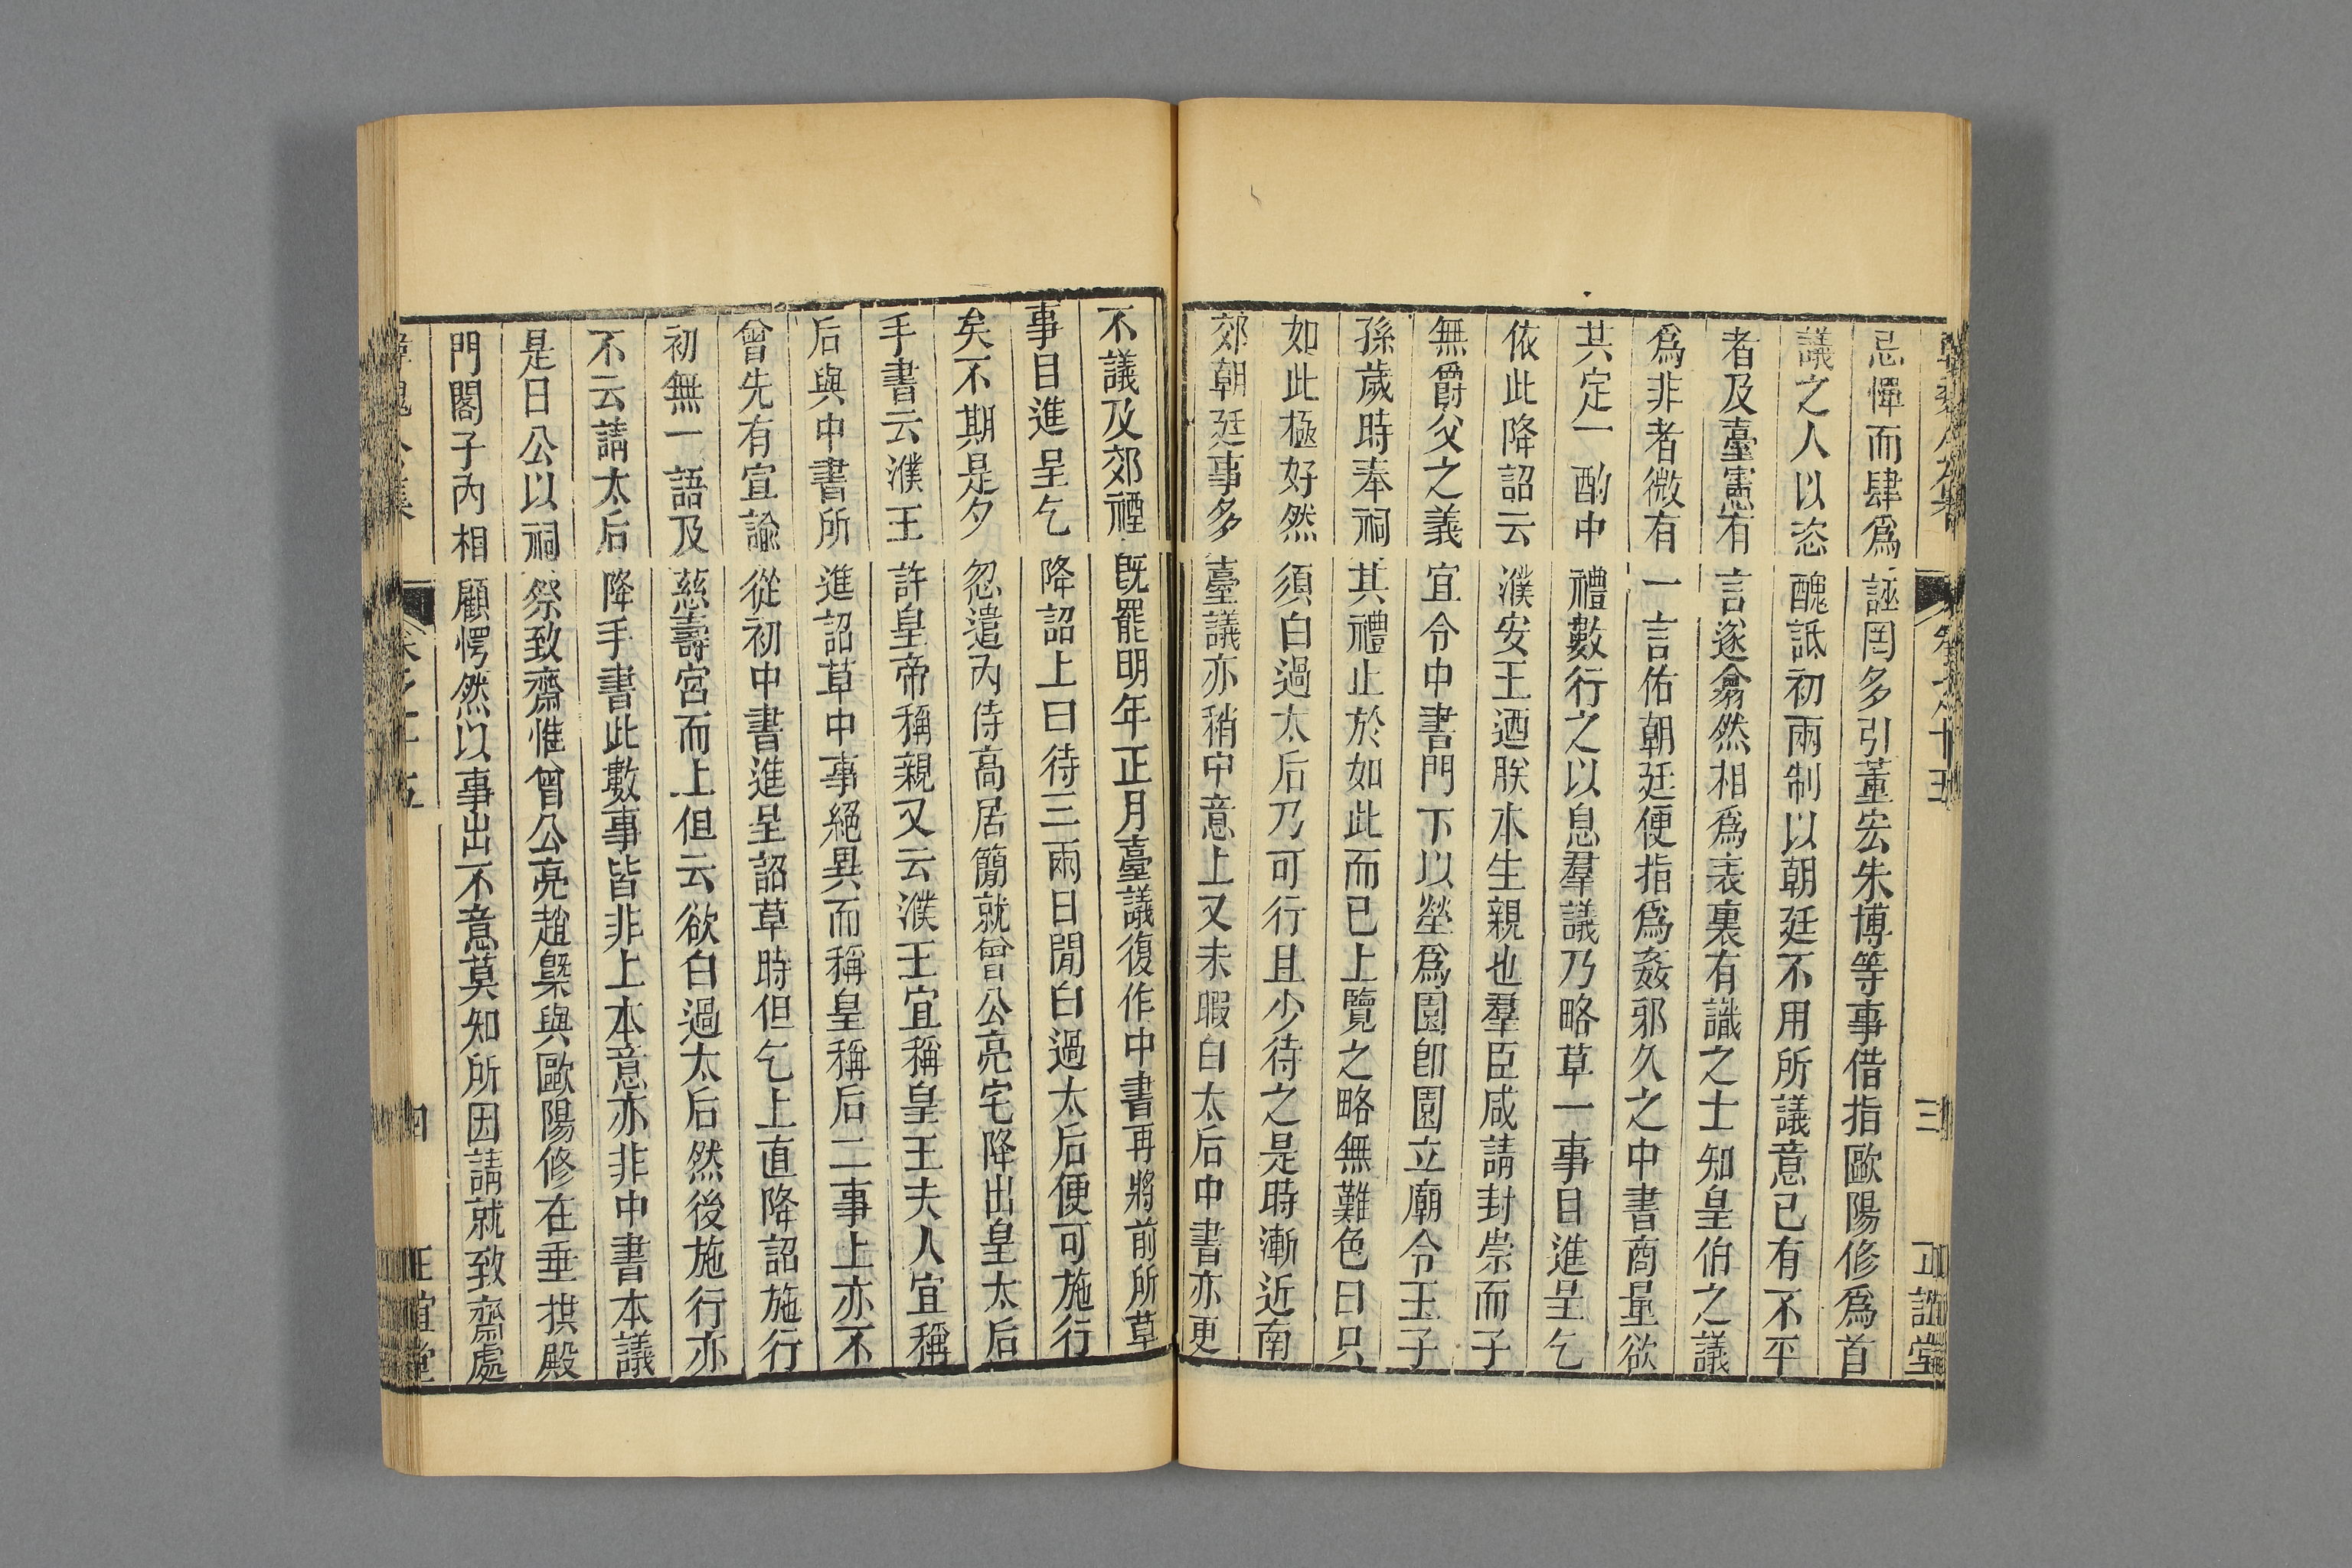 忌憚而肆爲誣罔多引董宏朱博等事借指歐陽修爲首
議之人以恣醜詆初兩制以朝廷不用所議意已有不平
者及臺憲有言遂翕然相爲表裏有識之士知皇伯之議
爲非者微有一言佑朝廷便指爲姦邪久之中書商量欲
共定一酌中禮數行之以息羣議乃略草一事目進呈乞
依此降詔云濮安王迺朕本生親也羣臣咸請封崇而子
無爵父之義宜令中書門下以塋爲園卽園立廟令王子
孫歲時奉祠其禮止於如此而已上覽之略無難色曰只
如此極好然須白過太后乃可行且少待之是時漸近南
郊朝廷事多臺議亦稍中意上又未暇白太后中書亦更
不議及郊禋旣罷明年正月臺議復作中書再將前所草
事目進呈乞降詔上曰待三兩日間白過太后便可施行
矣不期是夕忽遣內侍高居簡就曾公亮宅降出皇太后
手書云濮王許皇帝稱親又云濮王宜稱皇王夫人宜稱
后與中書所進詔草中事絕異而稱皇稱后二事上亦不
曾先有宣諭從初中書進呈詔草時但乞上直降詔施行
初無一語及慈壽宮而上但云欲白過太后然後施行亦
不云請太后降手書此數事皆非上本意亦非中書本議
是日公以祠祭致齋惟曾公亮趙槩與歐陽修在垂拱殿
門閣子內相顧愕然以事出不意莫知所因請就致齋處